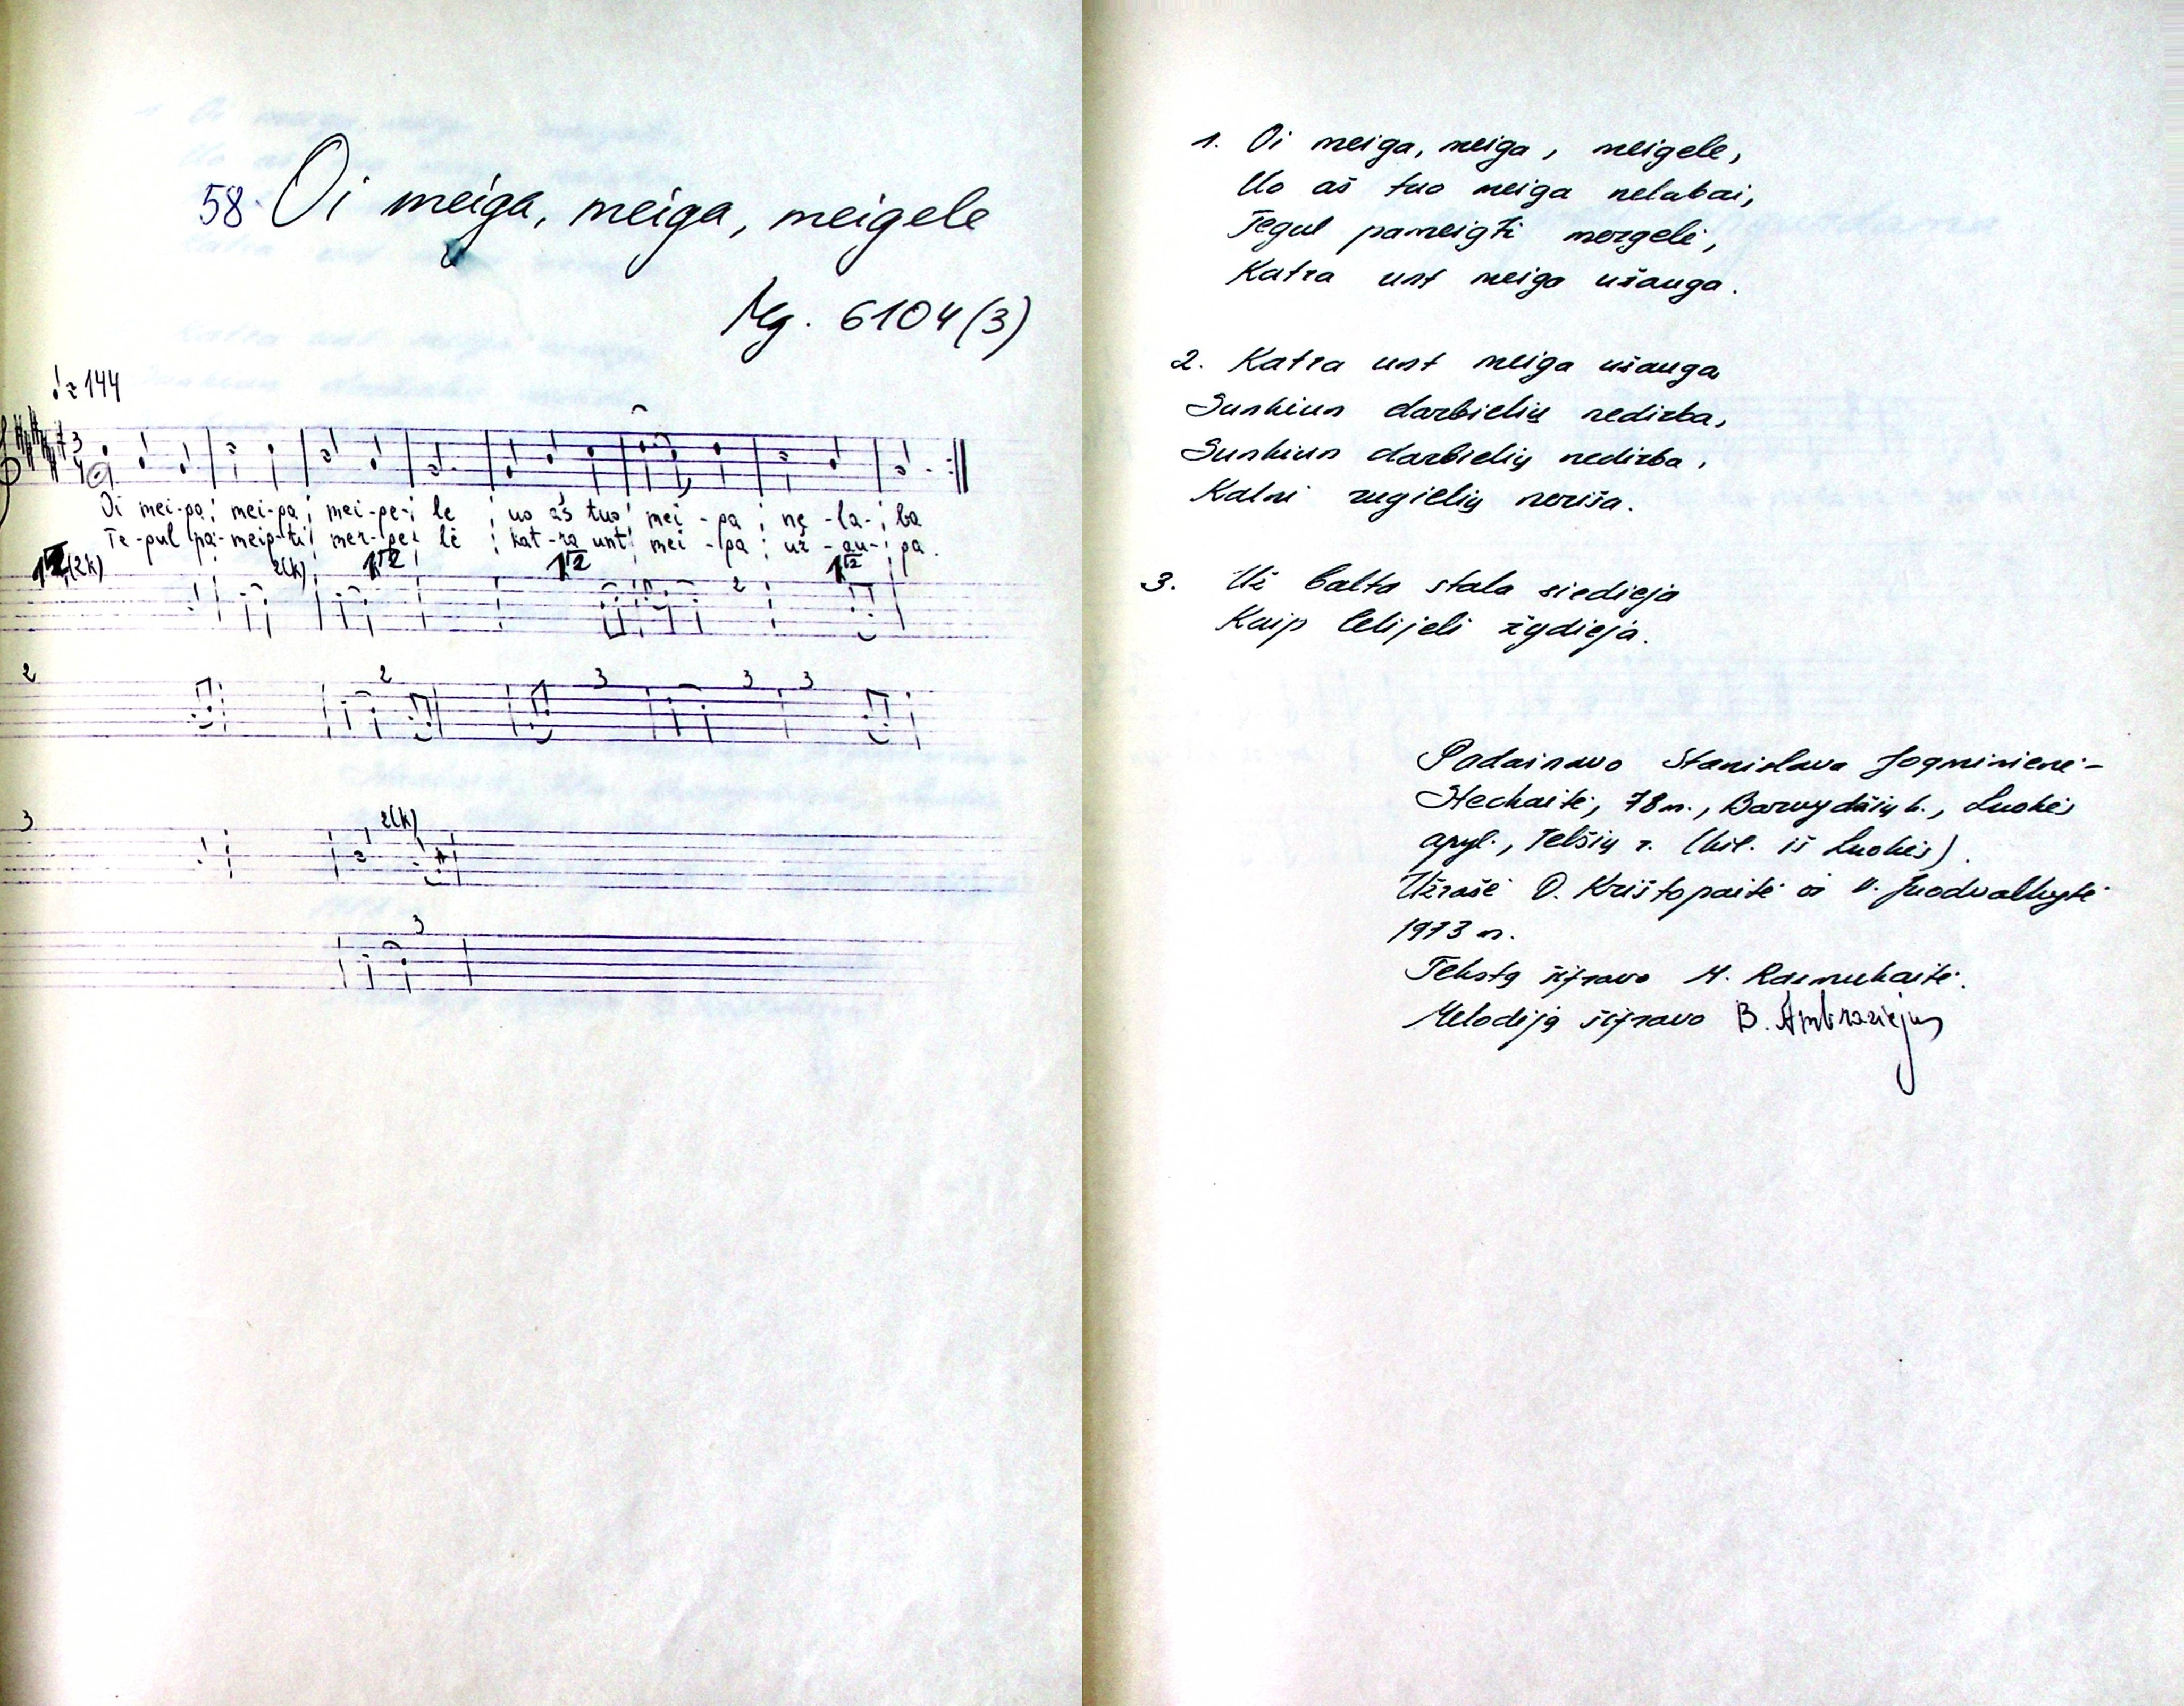 58. Oi meiga, meiga, meigele
Mg. 6104(3)
♩≈144
Oi mei-ga, mei-ga, mei-ge- le uo aš tuo mei - ga ne -la- ba
Te-gul pa-meig-ti mer-ge- lė kat-ra unt mei - ga už -au- ga.
2(k) 2(k)
2
2 2 3 3 3
3 2(k)
3
1. Oi meiga, meiga, meigele,
Uo aš tuo meiga nelabai,
Tegul pameigti mergelė,
Katra unt meiga užauga.
2. Katra unt meiga užauga
Sunkiun darbielių nedirba,
Sunkiun darbielių nedirba,
Kalni rugielių neriša.
3. Už balta stala siedieja
Kaip lelijeli žydieja.
Padainavo Stanislava Jogminienė-
78 m., k., Luokės
apyl., Telšių r. (kil. iš Luokės).
Užrašė D. Krištopaitė ir V. Juodvalkytė
1973 m.
Tekstą šifravo M. Razmukaitė.
Melodiją šifravo B. Ambraziejus